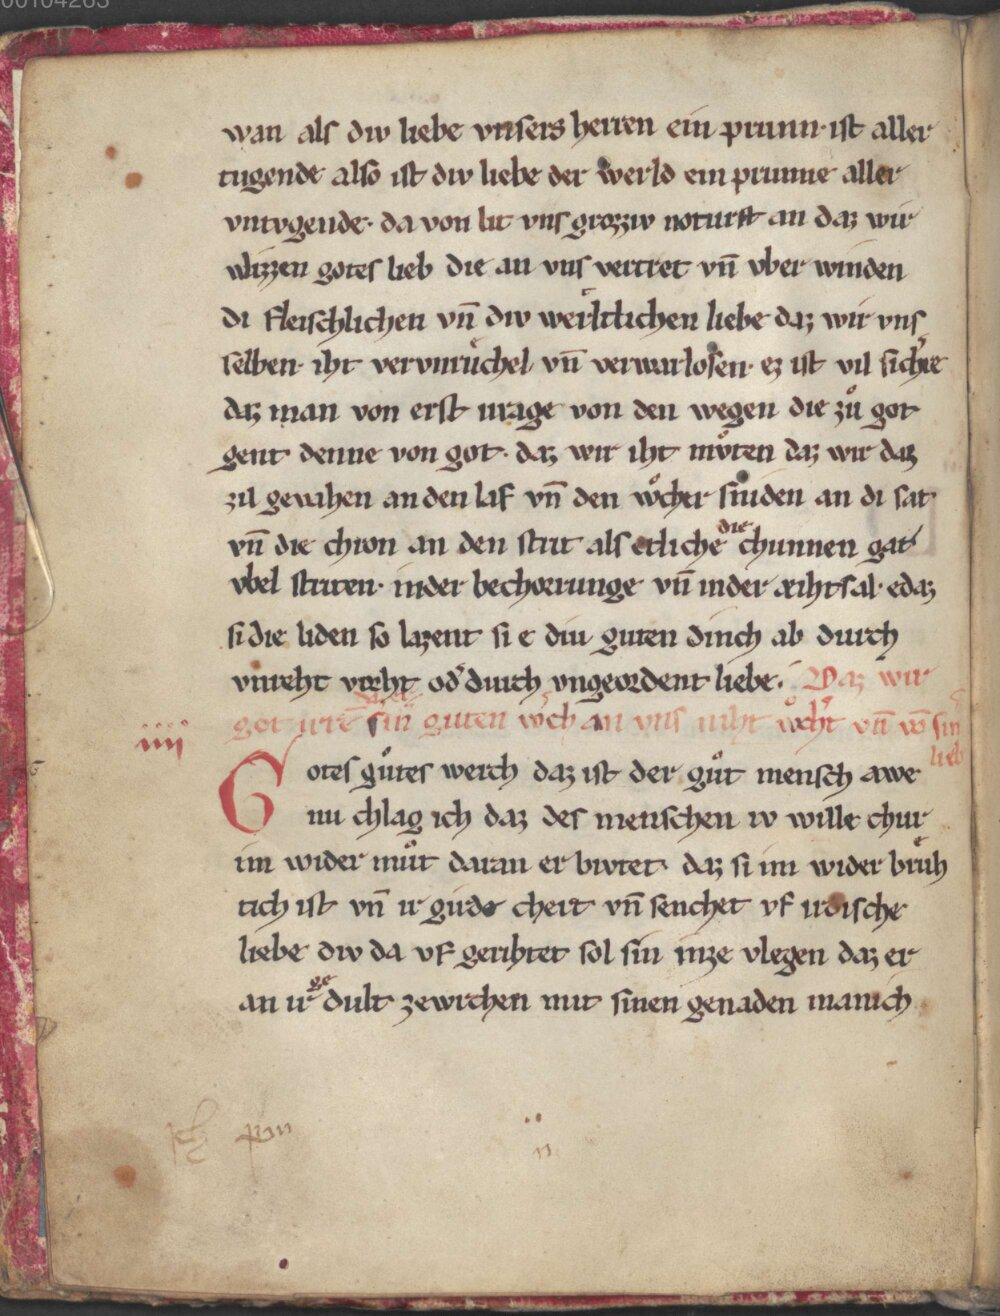 wan als div liebe vnsers herren ein prunn· ist aller
tugende also ist div liebe der werld ein prunne aller
vntvgende· da von lit vns grozziv noturft an daz wir
wizzen gotes lieb die an vns vertret vn̄ vber winden
di fleischlichen vn̄ div werltlichen liebe daz wir vns
selben· iht vervnrůchel vn̄ verwarlosen· ez ist vil sicher
daz man von erst vrage von den wegen die zů got
gent denne von got· daz wir iht mv̊ten daz wir daz
zil gewahen an den laf vn̄ den wͦcher sniden an di sat
vn̄ die chron an den strit als etliche die chunnen gar
vbel striten· in der bechorunge vn̄ in der ærihtsal· e daz
si die liden so lazent si e diu guten dinch ab durch
vnreht vorht od̾ durch vngeordent liebe. Daz wir
got irre sin guten w̾ch an vns niht vn̄ sin
lieb
iiii
Gotes gůtes werch daz ist der gůt mensch awe
nu chlag ich daz des menschen iv wille chur
im wider můt daran er bivtet· daz si im wider brůh
tich ist vn̄ ir girde chert vn̄ senchet vf irdische
liebe div da vf gerihtet sol sin inze vlegen daz er
an ir ge dult zewrchen mit sinen genaden manich